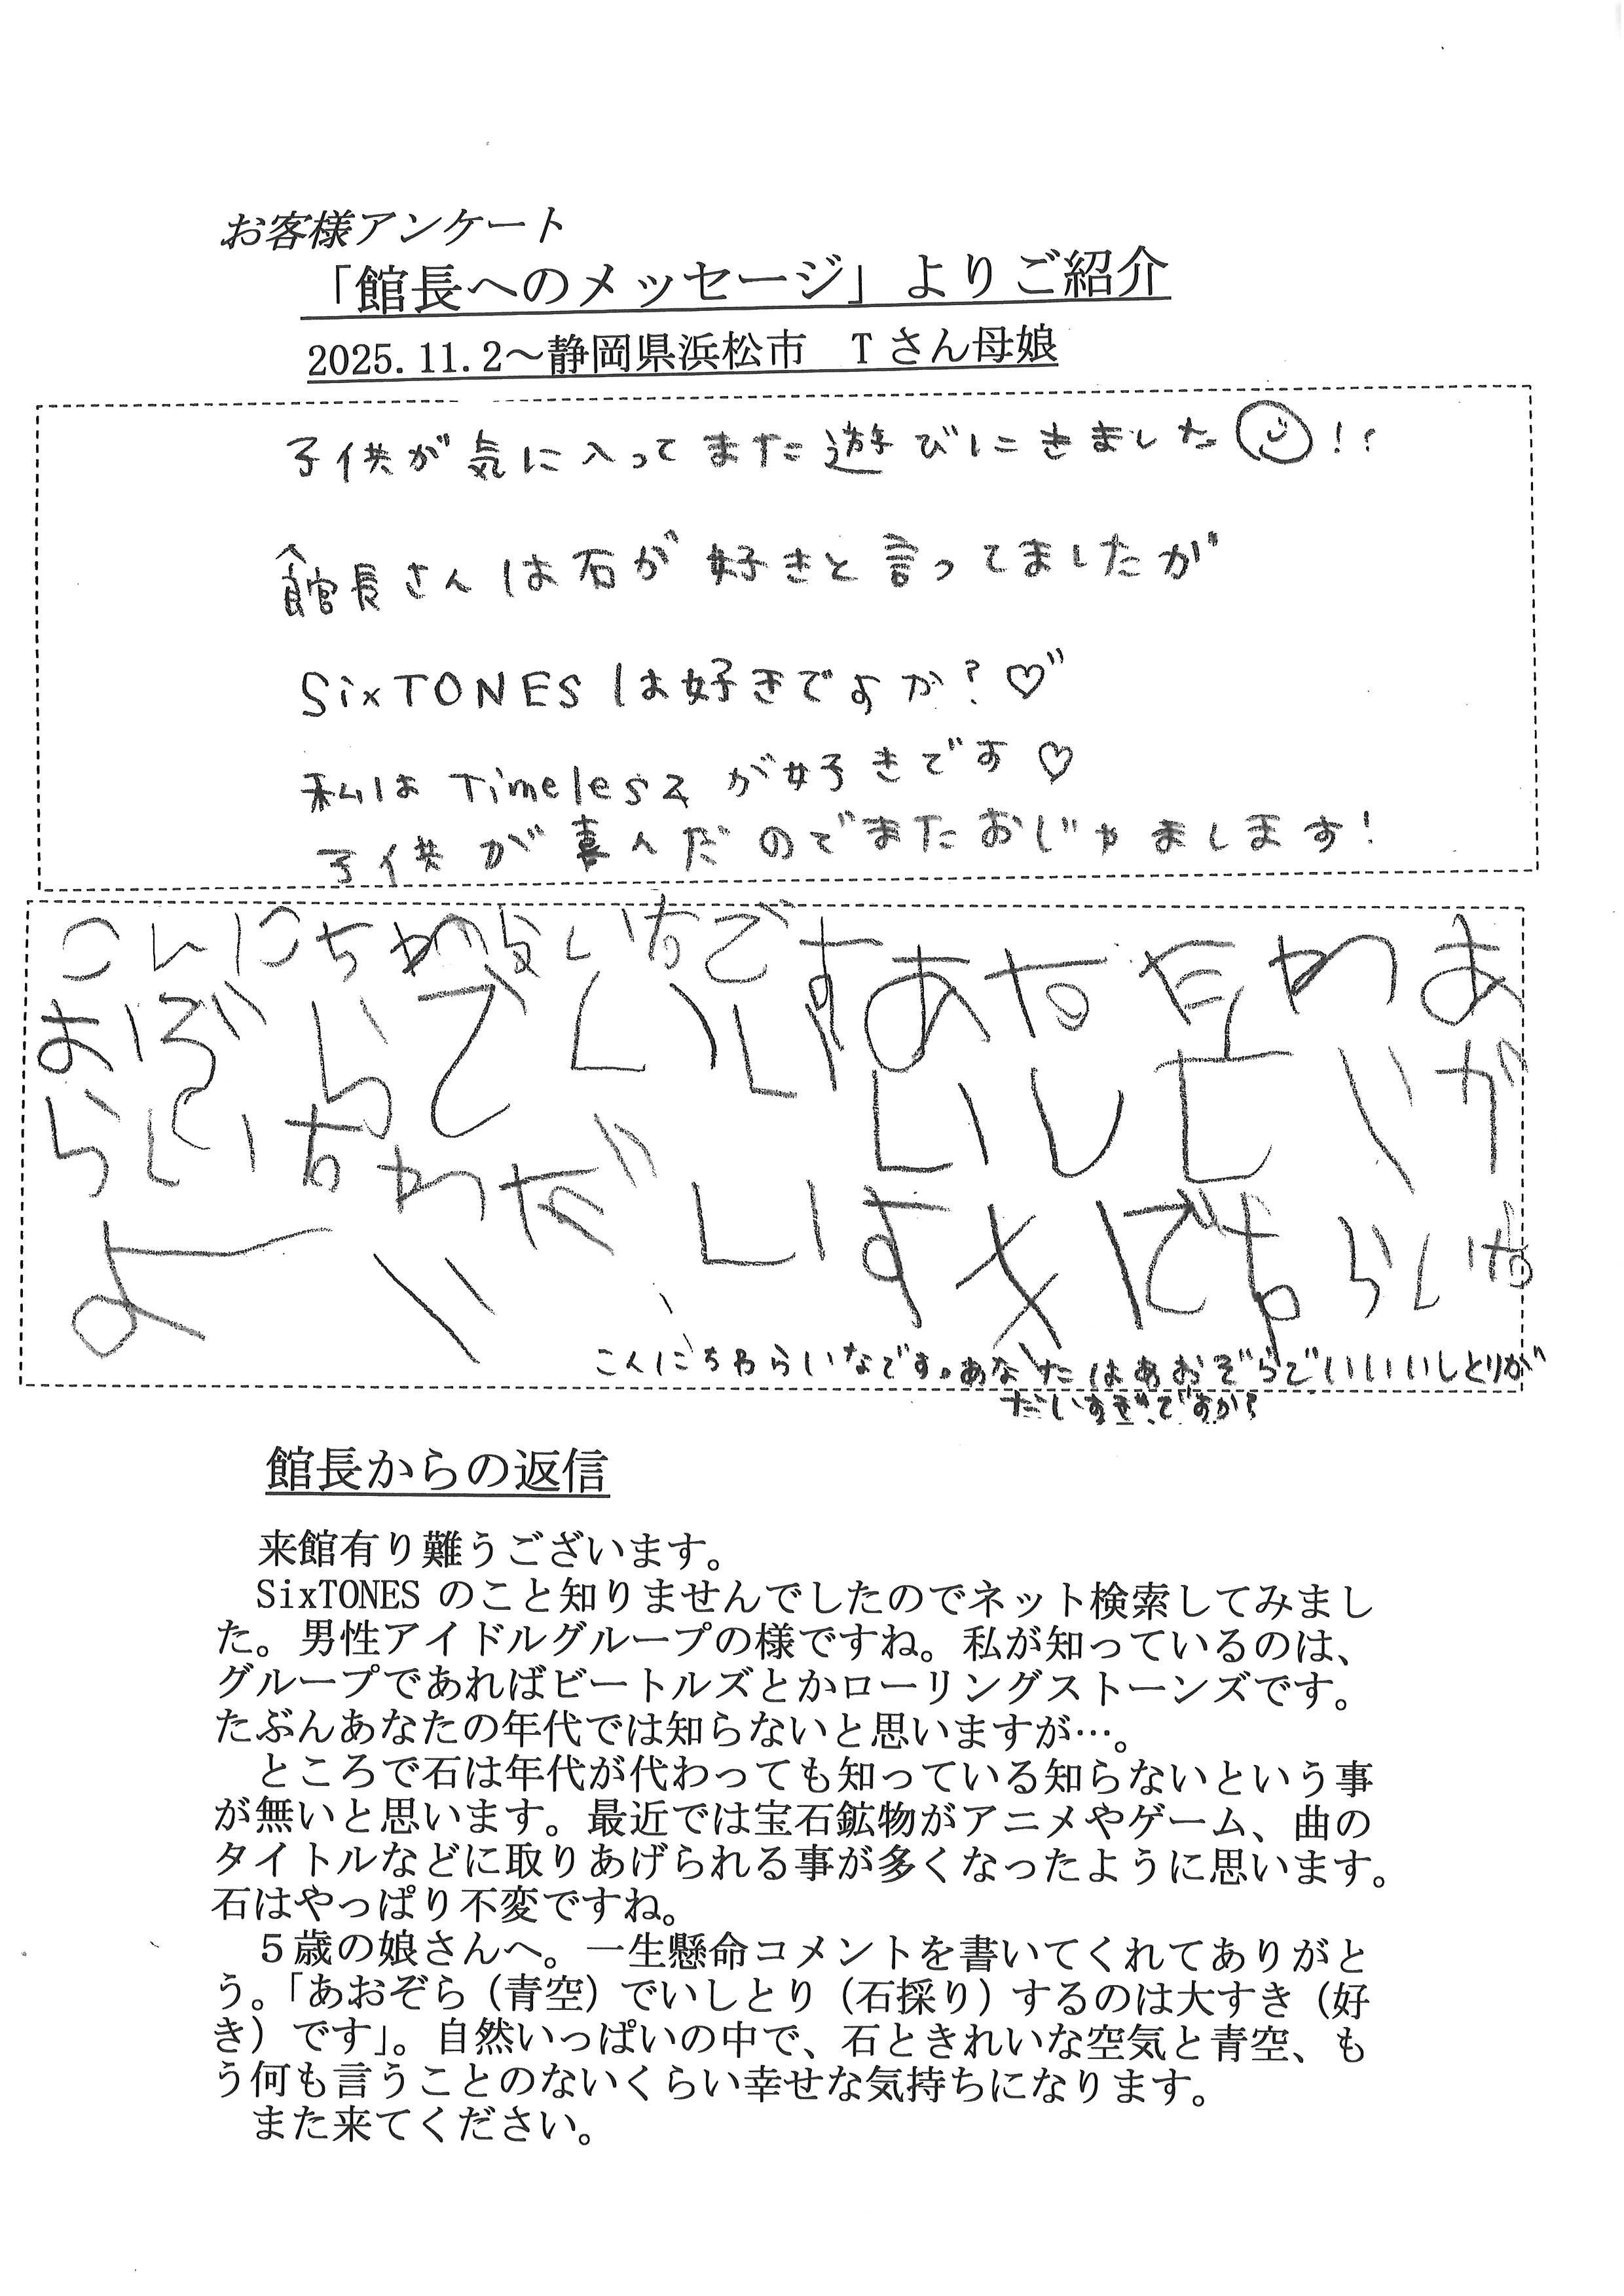 お客様アンケート
「館長へのメッセージ」よりご紹介
2025.11.2～静岡県浜松市　Tさん母娘
子供が気に入ってまた遊びにきました!!
館長さんは石が好きと言ってましたが
SixTONESは好きですか?♡
私はTimeleszが好きです♡
子供が喜んだのでまたおじゃまします!
こんにちわらいなです あなたわあ
おぞらでいい
らいなわだいすきです らいな
よーい
こんにちわらいなです。あなたはあおぞらでいいいしとりが
だいすきですか?
館長からの返信
来館有り難うございます。
SixTONES のこと知りませんでしたのでネット検索してみまし
た。男性アイドルグループの様ですね。私が知っているのは、
グループであればビートルズとかローリングストーンズです。
たぶんあなたの年代では知らないと思いますが…。
ところで石は年代が代わっても知っている知らないという事
が無いと思います。最近では宝石鉱物がアニメやゲーム、曲の
タイトルなどに取りあげられる事が多くなったように思います。
石はやっぱり不変ですね。
５歳の娘さんへ。一生懸命コメントを書いてくれてありがと
う。「あおぞら（青空）でいしとり（石採り）するのは大すき（好
き）です」。自然いっぱいの中で、石ときれいな空気と青空、も
う何も言うことのないくらい幸せな気持ちになります。
また来てください。